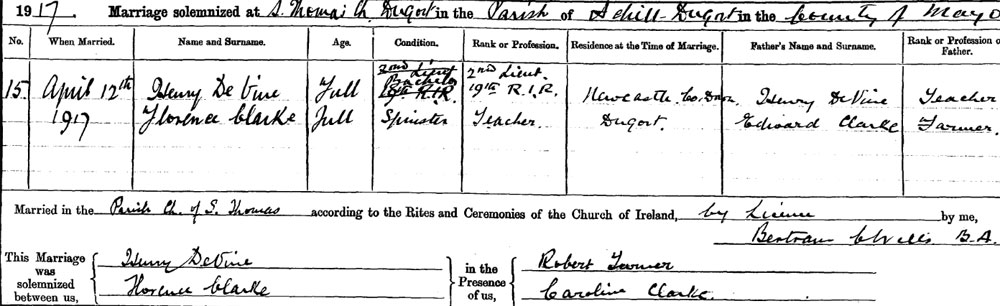 1917. Marriage solemnized at S. Thomas Ch. Dugort in the Parish of Achill-Dugort in the County of Mayo
No. When Married. Name and Surname. Age. Condition. Rank or Profession. Residence at the Time of Marriage. Father's Name and Surname. Rank or Profession of Father.
15. April 12th Henry De Vine Full 2nd Lieut 19th R.I.R. Bachelor 2nd Lieut. 19th R.I.R. Newcastle Co. Down Henry De Vine Teacher
1917 Florence Clarke Full Spinster Teacher. Dugort. Edward Clarke Farmer.
Married in the Parish Ch. of S. Thomas according to the Rites and Ceremonies of the Church of Ireland, by Licence by me,
Bertram B.A.
This Marriage was solemnized between us, Henry De Vine Florence Clarke in the Presence of us, Robert Caroline Clarke.